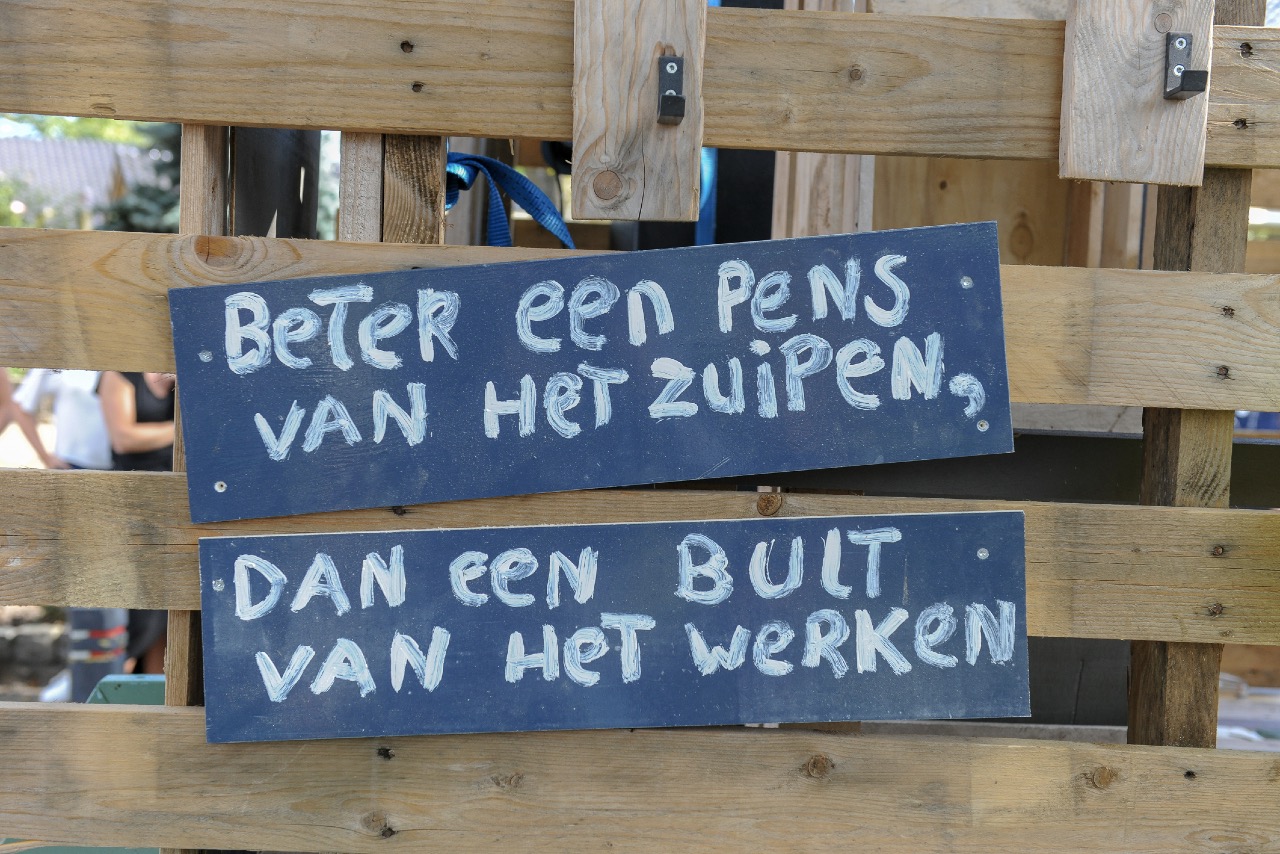 BeTeR een PeNS
VAN HeT ZUiPeN,
DAN eeN BULT
VAN HeT WeRKeN